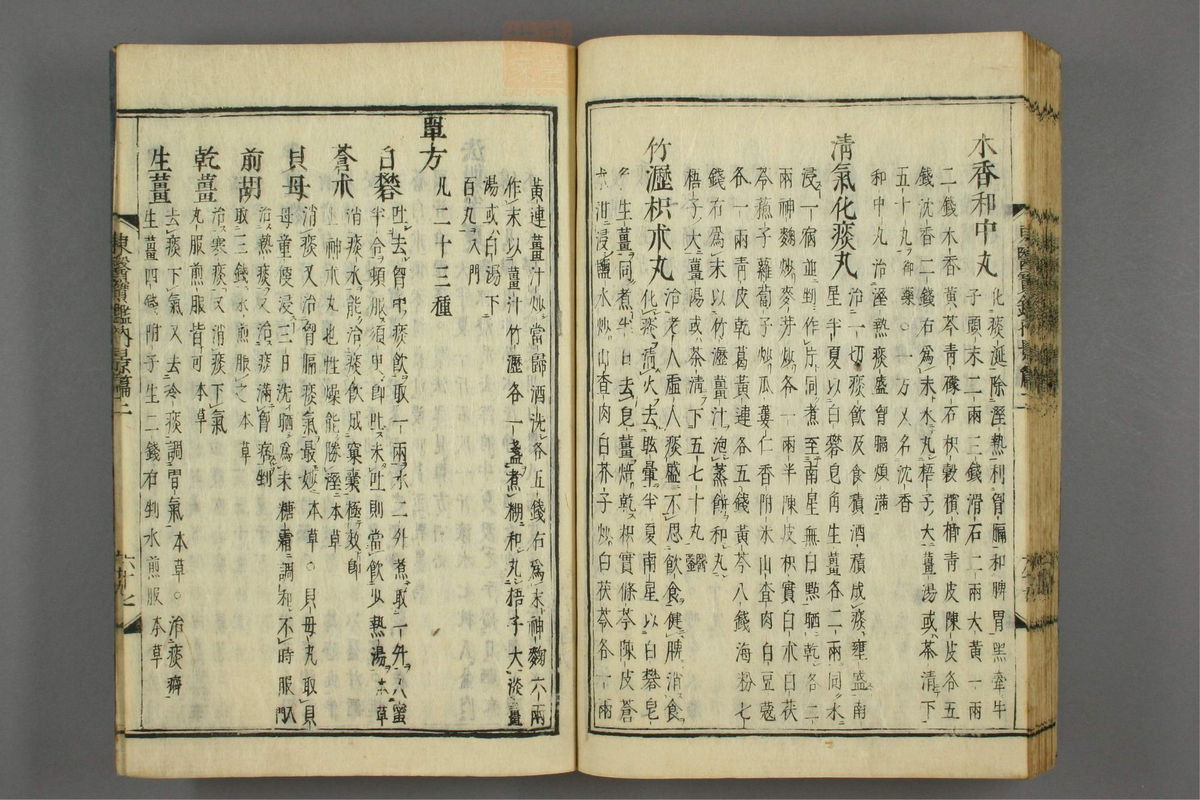 木香和中丸 化痰涎除溼熱利胷膈和脾胃黑牽牛
子頭末二兩三錢滑石二兩大黃一兩
二錢木香黃芩青礞石枳殼檳榔青皮陳皮各五
錢沈香二錢右爲末水丸梧子大薑湯或茶清下
五十丸御藥○一方又名沈香
和中丸治溼熱痰盛胷膈煩滿
清氣化痰丸 治一切痰飲及食積酒積成痰壅盛南
星半夏以白礬皂角生薑各二兩同水
浸一宿並剉作片同煮至南星無白㸃晒乾各二
兩神麴炒麥芽炒各一兩半陳皮枳實白朮白茯
苓蘇子蘿蔔子炒瓜蔞仁香附米山査肉白豆蔻
各一兩青皮乾葛黃連各五錢黃芩八錢海粉七
錢右爲末以竹瀝薑汁泡蒸餅和丸
梧子大薑湯或茶清下五七十丸醫鑑
竹瀝枳朮丸 治老人虛人痰盛不思飮食健脾消食
化痰淸火去眩暈半夏南星以白礬皂
角生薑同煮半日去皂薑焙乾枳實條芩陳皮蒼
朮泔浸鹽水炒山査肉白芥子炒白茯苓各一兩
黃連薑汁炒當歸酒洗各五錢右爲末神麴六兩
作末以薑汁竹瀝各一盞煮糊和丸梧子大淡薑
湯或白湯下
百丸入門
單方 凡二十三種
白礬 吐去胷中痰飮取一兩水二升煮取一升入蜜
半合頓服須臾卽吐未吐則當飮少熱湯本草
蒼朮 消痰水能治痰飮成窠囊極效卽
上神朮丸也性燥能勝溼本草
貝母 消痰又治胷膈痰氣最妙本草○貝母丸取貝
母童便浸三日洗晒爲末糖霜調和不時服入門
前胡 治熱痰又治痰滿胷痞剉
取三錢水煎服之本草
乾薑 治寒痰又消痰下氣
丸服煎服皆可本草
生薑 去痰下氣又去冷痰調胃氣本草○治痰癖
生薑四錢附子生二錢右剉水煎服本草
東醫寶鑑內景篇二